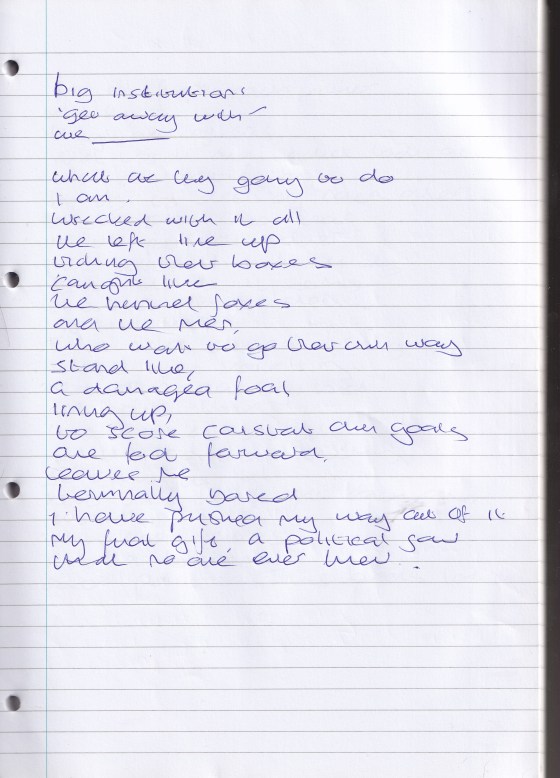 big institutions
'get away with'
are
what are they going to do
I am.
wrecked with it all
the left line up
ticking their boxes
caught like
the hunted foxes
and the men,
who want to go their own way
stand like,
a damaged foal
lining up,
to score constant own goals
are fed forward.
leaves me
terminally bored
I have pushed my way out of it
My final gift, a political
no one ever knew.